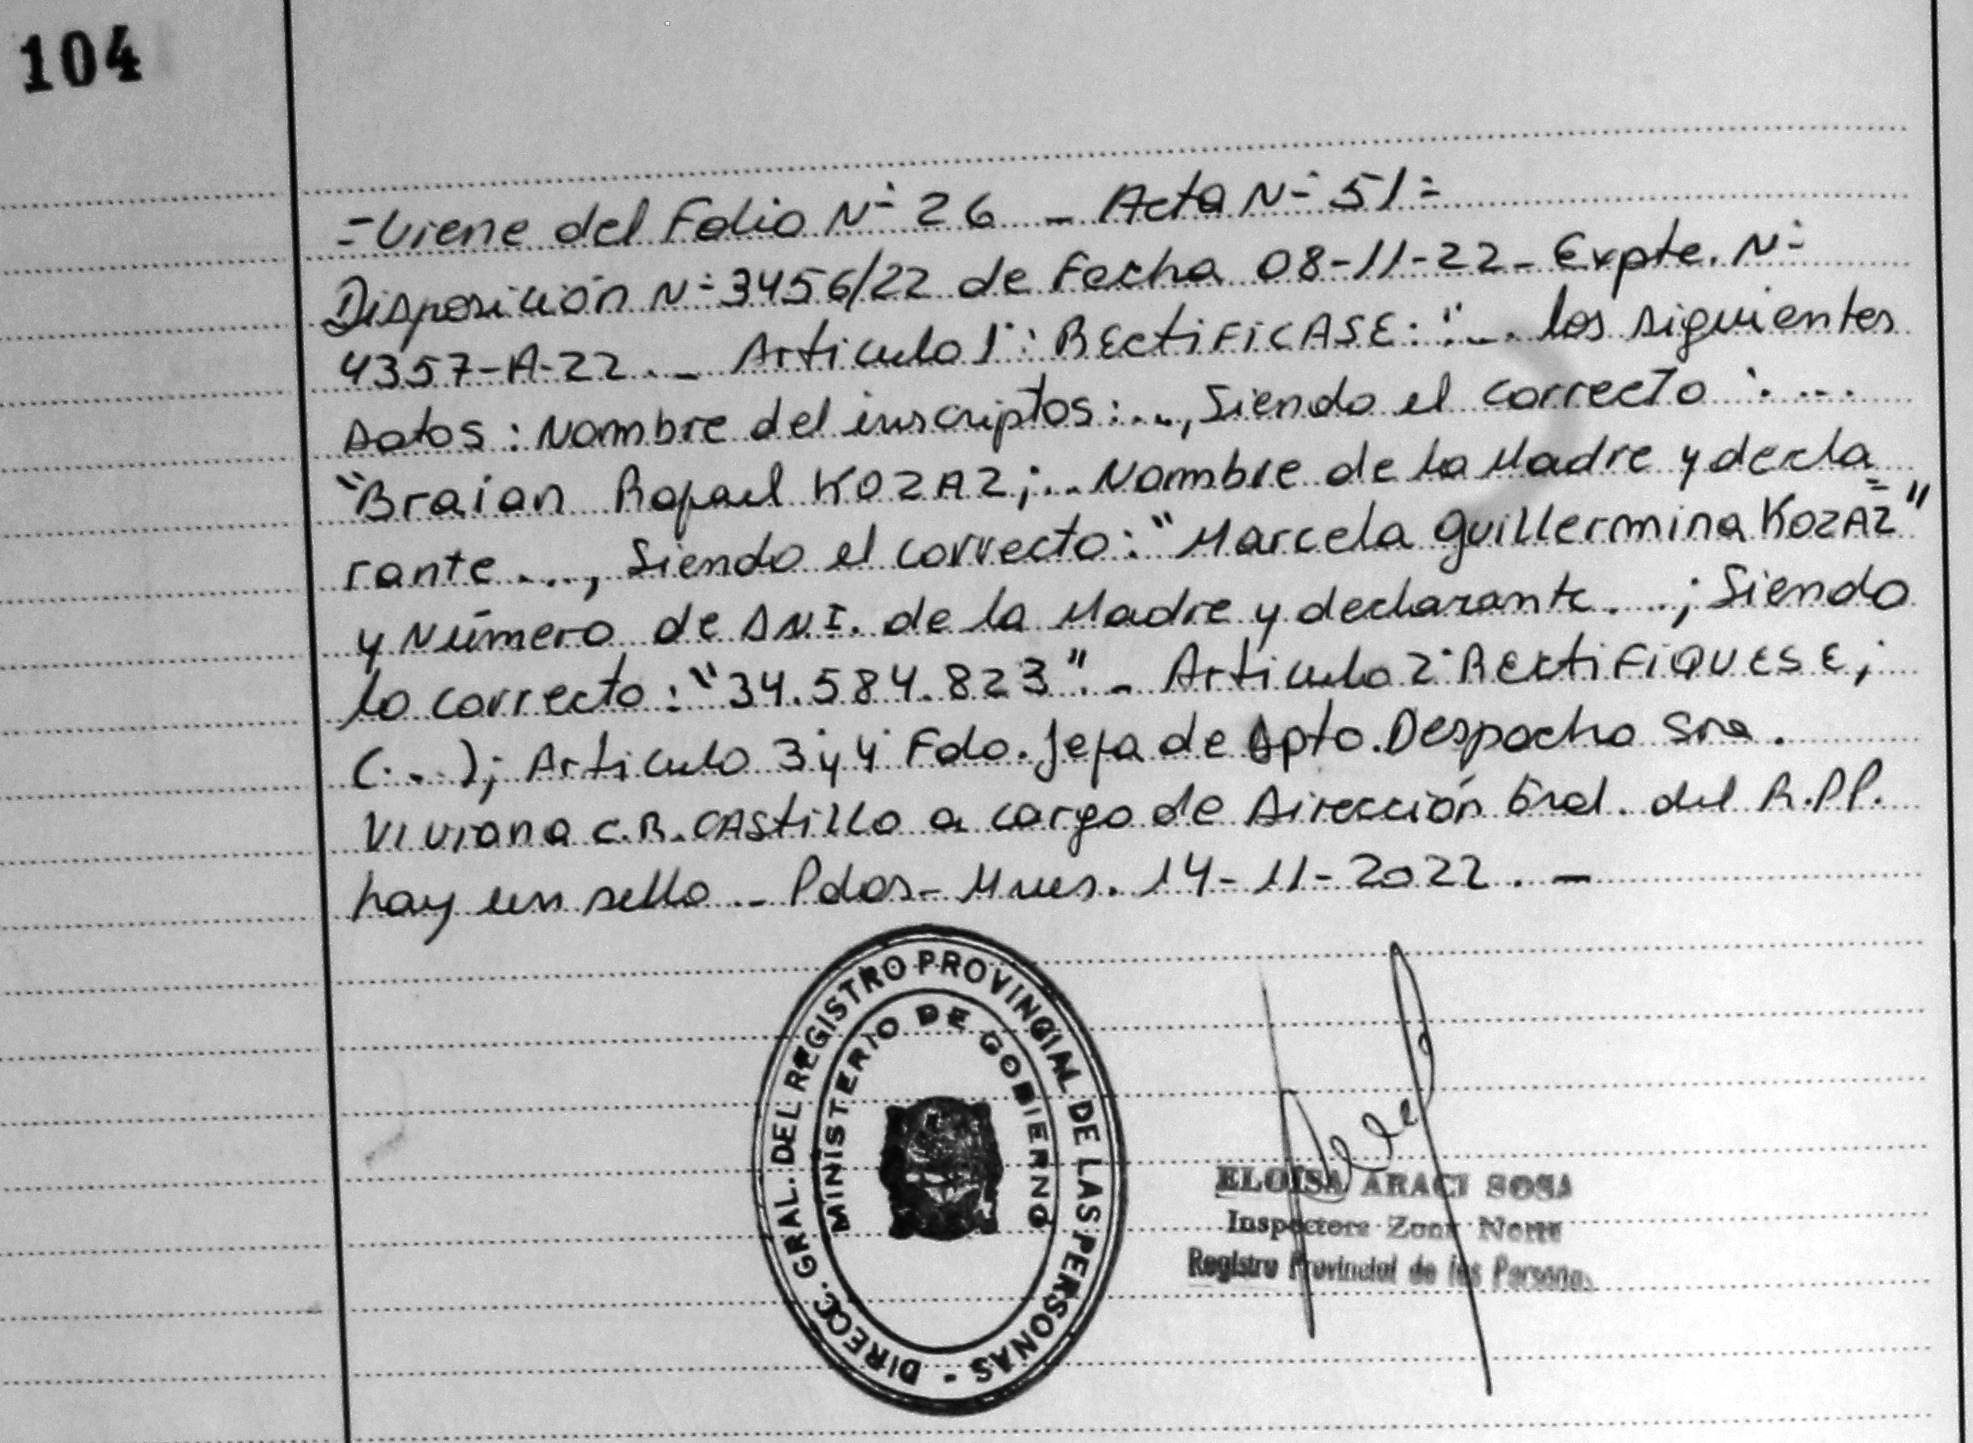 104
=Viene del Folio N° 26 - Acta N° 51=
Disposición N° 3456/22 de Fecha 08-11-22- Expte. N°
4357-A-22.- Articulo 1°: RECTIFICASE: "... los siguientes
Datos: Nombre del inscriptos:..., Siendo el correcto: ...
"Braian Rafael KOZAZ; .. Nombre de la Madre y decla=
rante ..., Siendo el correcto: "Marcela Guillermina KOZAZ"
y Número de DNI. de la Madre y declarante. ..; Siendo
lo correcto: "34.584.823".- Articulo 2° RECTIFIQUESE;
(...); Articulo 3° y 4° Fdo. Jefa de Dpto. Despacho Sra.
Viviana C.R. CASTILLO a cargo de Dirección Gral. del R.P.P.
hay un sello - Pdas - Mnes. 14-11-2022. -
DIRECC. GRAL. DEL REGISTRO PROVINCIAL DE LAS PERSONAS -
MINISTERIO DE GOBIERNO
ELOISA ARACI SOSA
Inspectora Zona Norte
Registro Provincial de las Personas